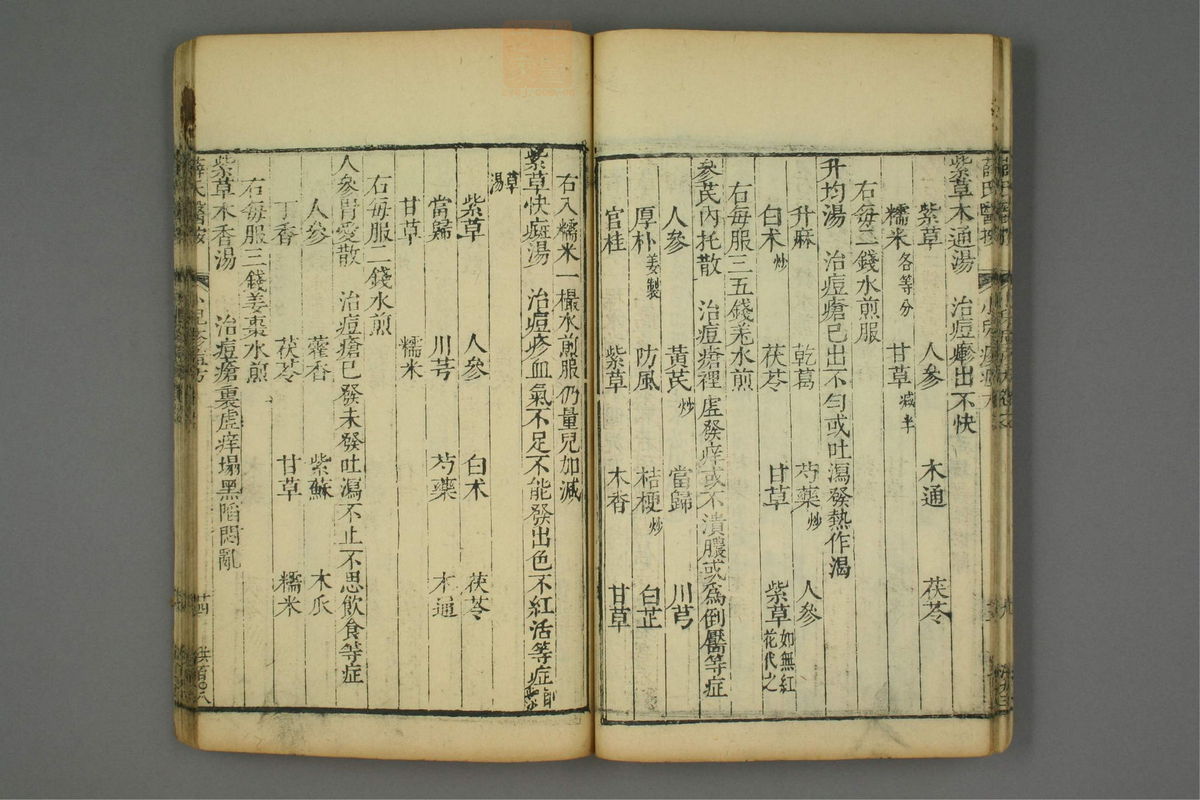 紫草木通湯　治痘疹出不快
紫草　人參　木通　茯苓
糯米各等分　甘草減半
右每二錢水煎服
升均湯　治痘瘡已出不勻或吐瀉發熱作渴
升麻　乾葛　芍藥炒　人參
白术炒　茯苓　甘草　紫草如無紅花代之
右每服三五錢羌水煎
參芪內托散　治痘瘡裡虛發痒或不潰膿或為倒靨等症
人參　黃芪炒　當歸　川芎
厚朴姜製　防風　桔梗炒　白芷
官桂　紫草　木香　甘草
右入糯米一撮水煎服仍量兒加減
紫草快癍湯　治痘疹血氣不足不能發出色不紅活等症即紫
草湯
紫草　人參　白术　茯苓
當歸　川芎　芍藥　木通
甘草　糯米
右每服二錢水煎
人參胃愛散　治痘瘡已發未發吐瀉不止不思飲食等症
人參　藿香　紫蘇　木瓜
丁香　茯苓　甘草　糯米
右每服三錢姜棗水煎
紫草木香湯　治痘瘡裏虛痒塌黑陷悶亂
薛氏醫按　廿四